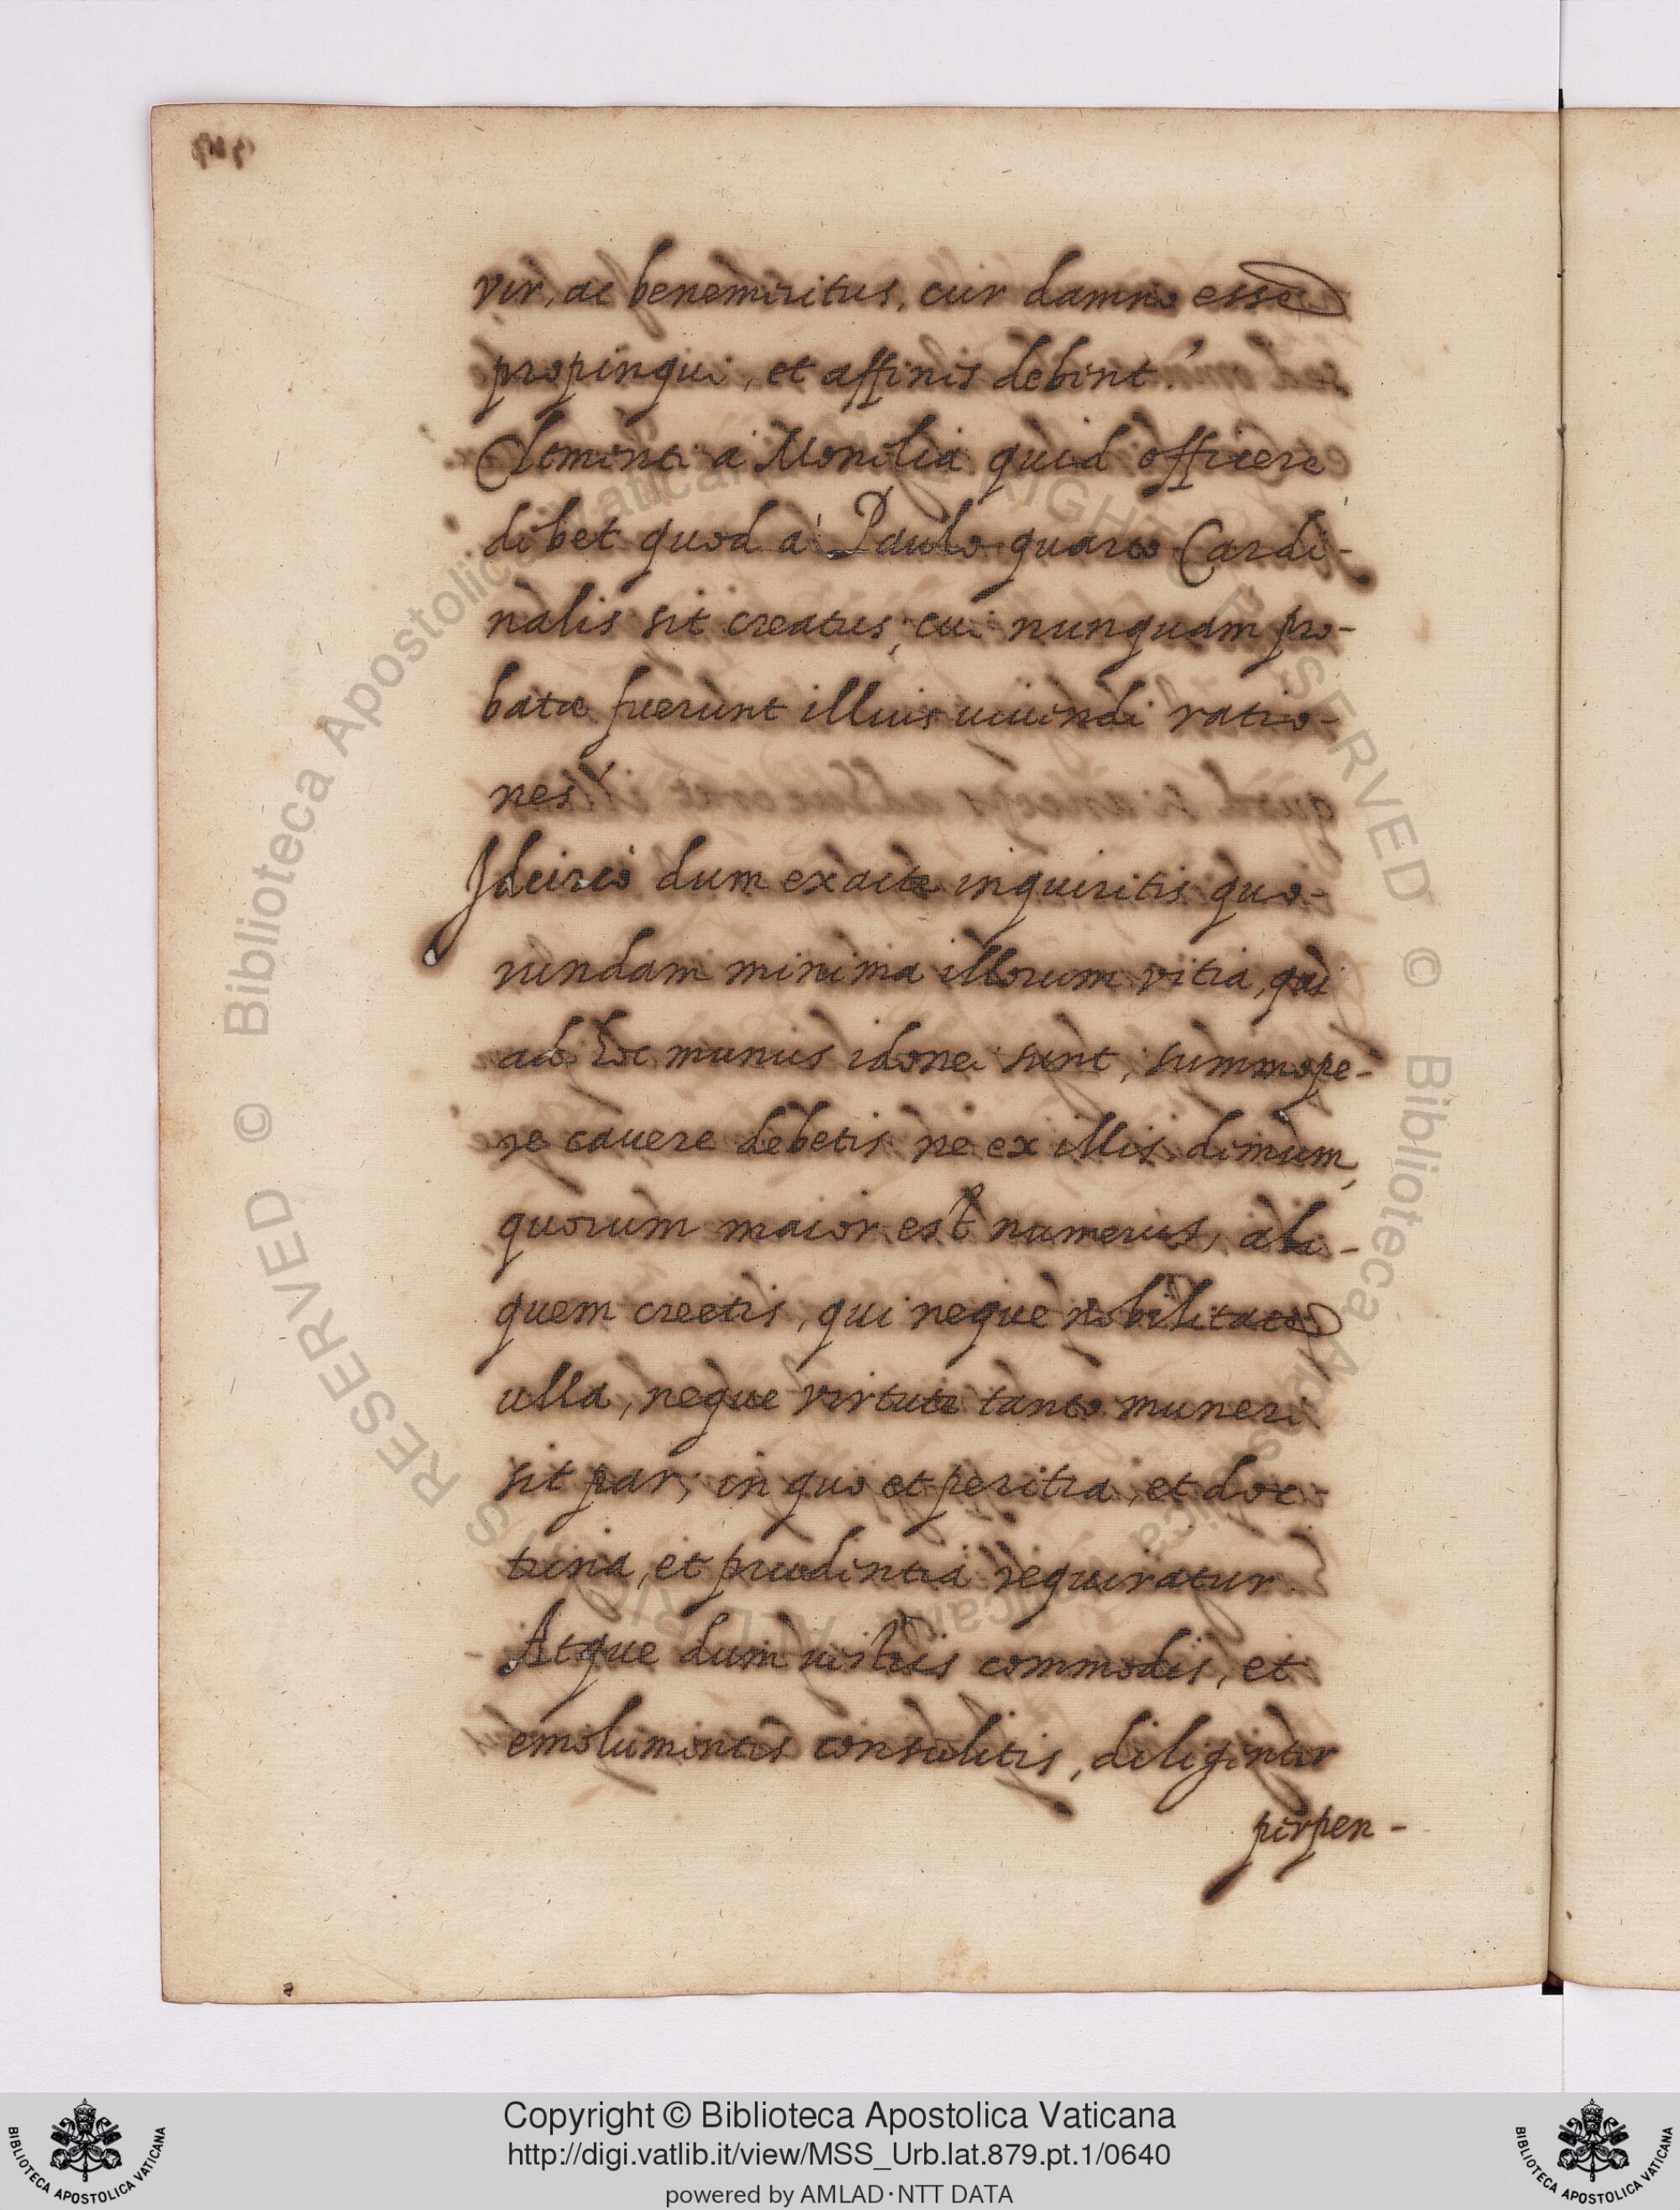 vir, ac benemeritus, cur damno esse
propinqui, et affines debent?
Clementi à Monilia quid officere
debet quod à Paulo quarto Cardi-
nalis sit creatus, cui nunquam pro-
batæ fuerunt illius uiuendi ratio-
nes?
Idcircò dum exacte inquiritis quo-
rundam minima illorum vitia, qui
ad hoc munus idonei sunt, summope-
re cauere debetis ne ex illis demum,
quorum maior est numerus, ali-
quem creetis, qui neque nobilitate
ulla, neque virtute tanto muneri
sit par, in quo et peritia, et doc-
trina, et prudentia requiratur.
Atque dum uestris commodis, et
emolumentis consulitis, diligenter
perpen-
© Biblioteca Apostolica Vaticana ALL RIGHTS RESERVED
© Biblioteca Apostolica Vaticana ALL RIGHTS RESERVED
Copyright © Biblioteca Apostolica Vaticana
http://digi.vatlib.it/view/MSS_Urb.lat.879.pt.1/0640
powered by AMLAD·NTT DATA
BIBLIOTECA APOSTOLICA VATICANA
BIBLIOTECA APOSTOLICA VATICANA